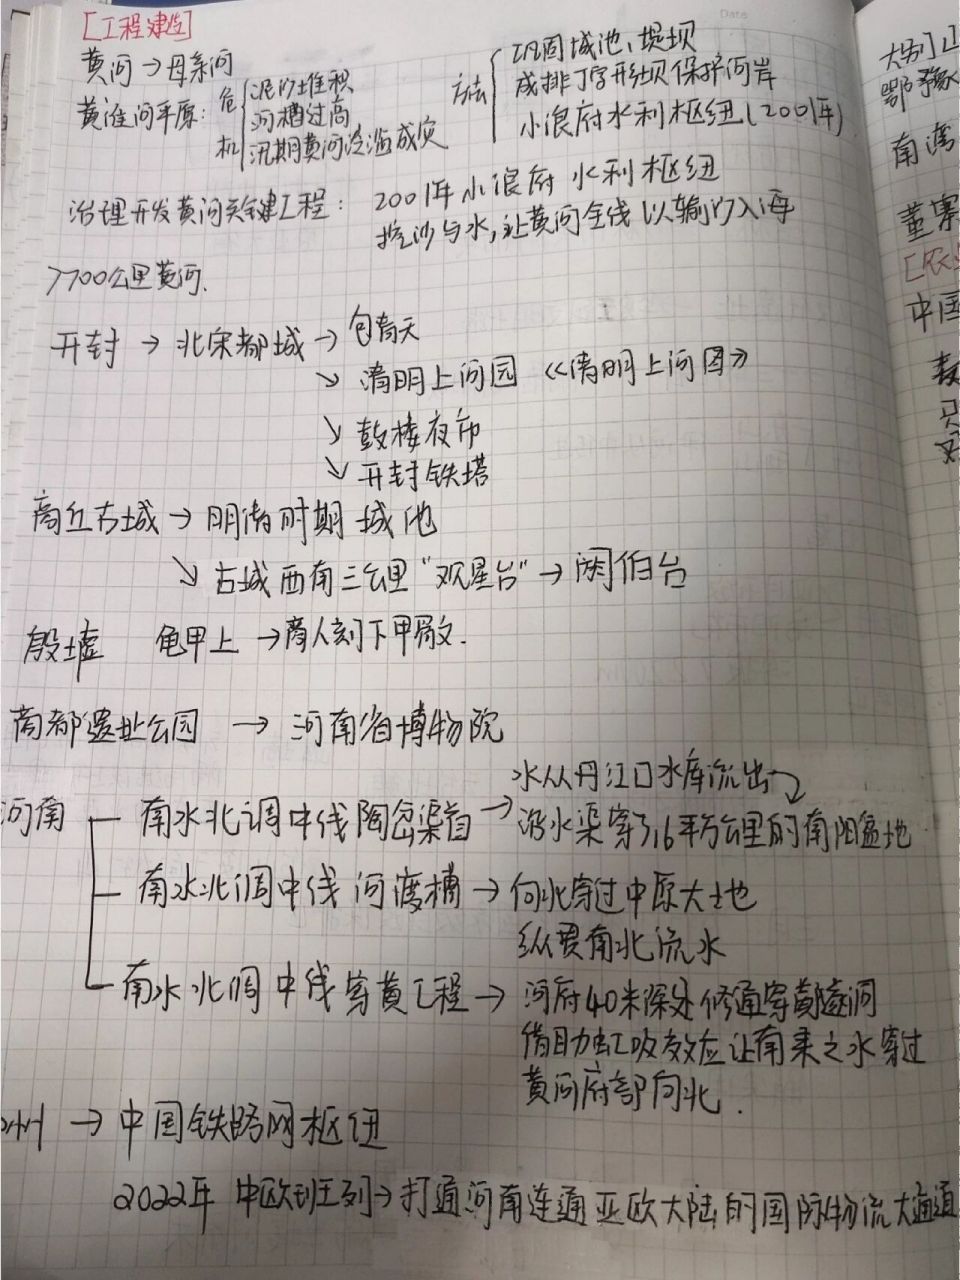 Date
[工程建造]
黄河→母亲河
黄淮河平原: 危机 { 泥沙堆积
河槽过高
汛期黄河泛滥成灾
方法 { 巩固城池、堤坝
成排丁字形坝保护河岸
小浪府水利枢纽(2001年)
治理开发黄河关键工程: 2001年小浪府水利枢纽
控沙与水,让黄河全线以输沙入海
700公里黄河.
开封→北宋都城→包青天
↘清明上河园《清明上河图》
↘鼓楼夜市
↘开封铁塔
商丘古城→明清时期城池
↘古城西南三公里"观星台"→阏伯台
殷墟 龟甲上→商人刻下甲骨文.
商都遗址公园→河南省博物院
河南
南水北调中线陶岔渠首→水从丹江口水库流出
沿水渠穿了16平方公里的南阳盆地
南水北调中线 河渡槽→向北穿过中原大土地
纵贯南北流水
南水北调中线穿黄工程→河府40米深处修通穿黄隧洞
借助虹吸效应让南来之水穿过
黄河府部向北.
州→中国铁路网枢纽
2022年 中欧班列→打通河南连通亚欧大陆的国际物流大通道
大别山
鄂豫
南湾
董寨
[农业
中国